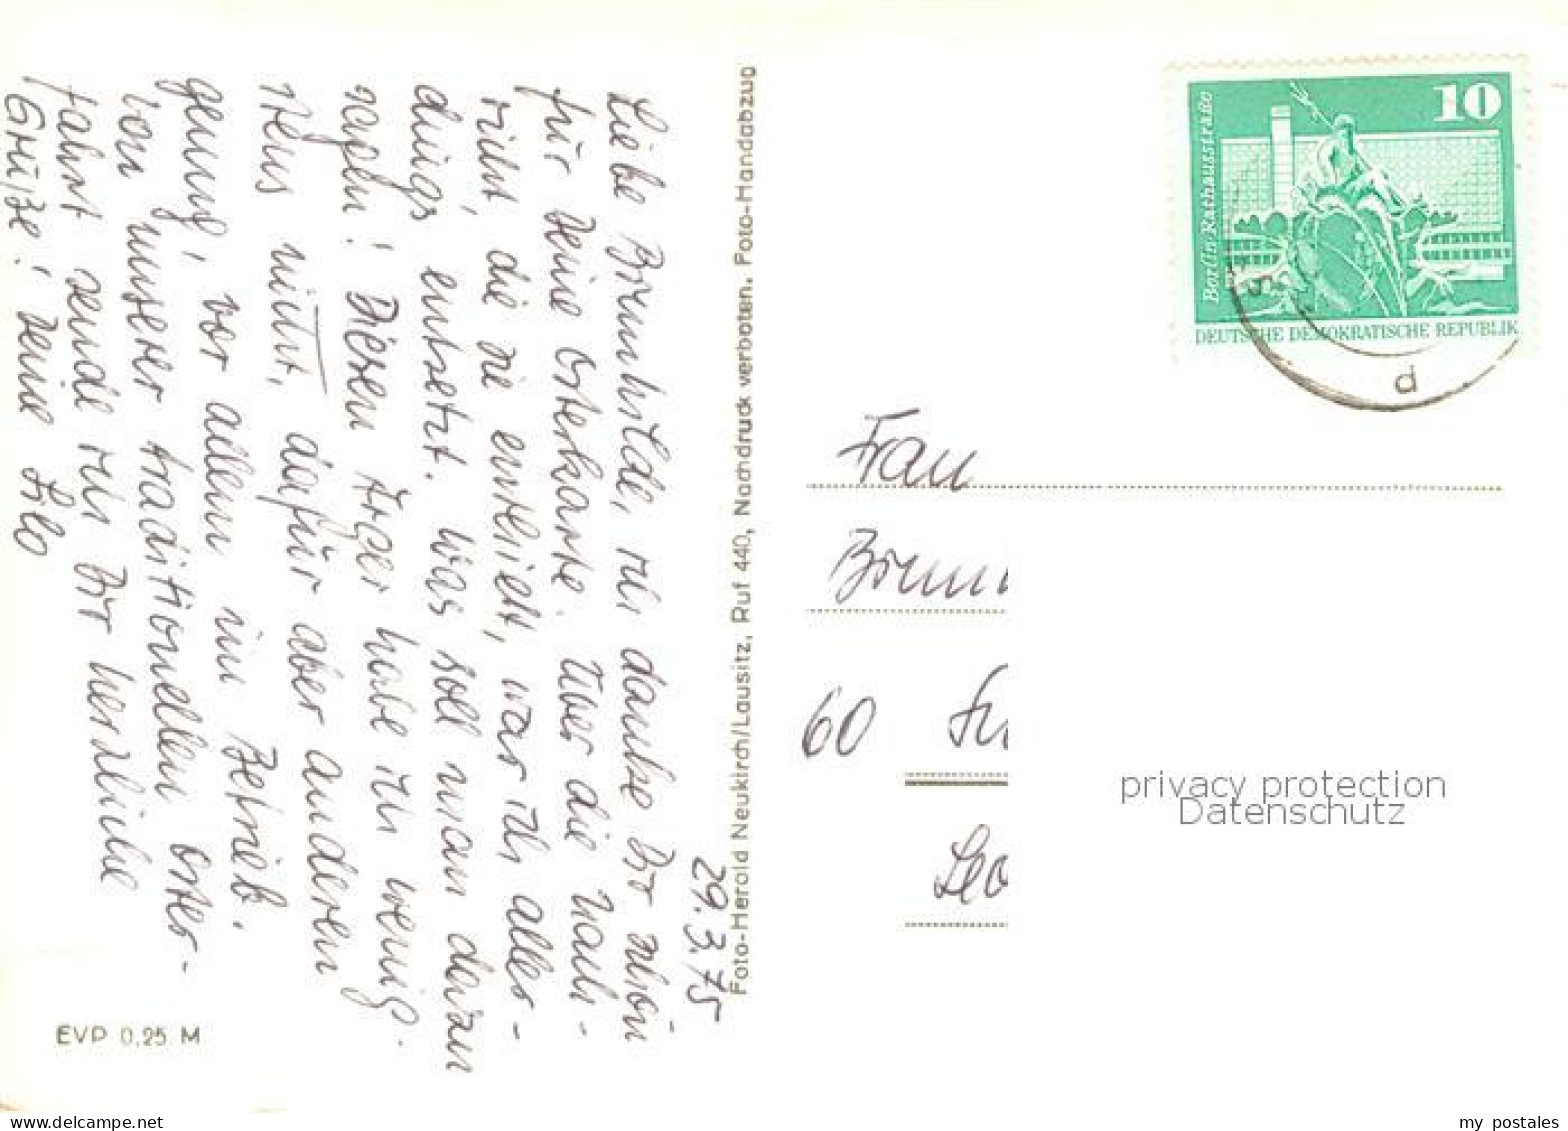 29.3.75
Liebe Brunhilde, ich danke Dir schön
für Deine Osterkarte. Über die Nach-
richt, die sie enthielt, war ich aller-
dings entsetzt. Was soll man daran
sagen! Diesen Ärger habe ich wenig-
stens nicht, dafür aber anderen
genug, vor allem im Betrieb.
Von unserer traditionellen Oster-
fahrt sende ich Dir herzliche
Grüße! Deine Lilo
EVP 0,25 M
Foto-Herold Neukirch/Lausitz, Ruf 440, Nachdruck verboten, Foto-Handabzug
10
Berlin-Rathausstraße
DEUTSCHE DEMOKRATISCHE REPUBLIK
d
Frau
60
privacy protection
Datenschutz
my postales